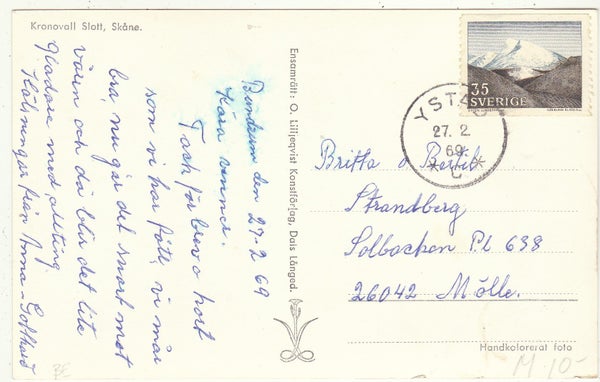 Kronovall Slott, Skåne.
Bunderum den 27-2 69
Kära vänner.
Tack för brev o kort
som vi har fått, vi mår
bra, nu går det snart mot
våren och då blir det lite
gladare med allting
Hälsningar från Anna-Gotthard
Ensamrätt: O. Lilljeqvist Konstförlag, Dals Långed.
35
SVERIGE
YSTAD
27. 2.
69
Britta o Bertil
Strandberg
Solbacken Pl 638
26042 Mölle.
Handkolorerat foto
M 10-
BE